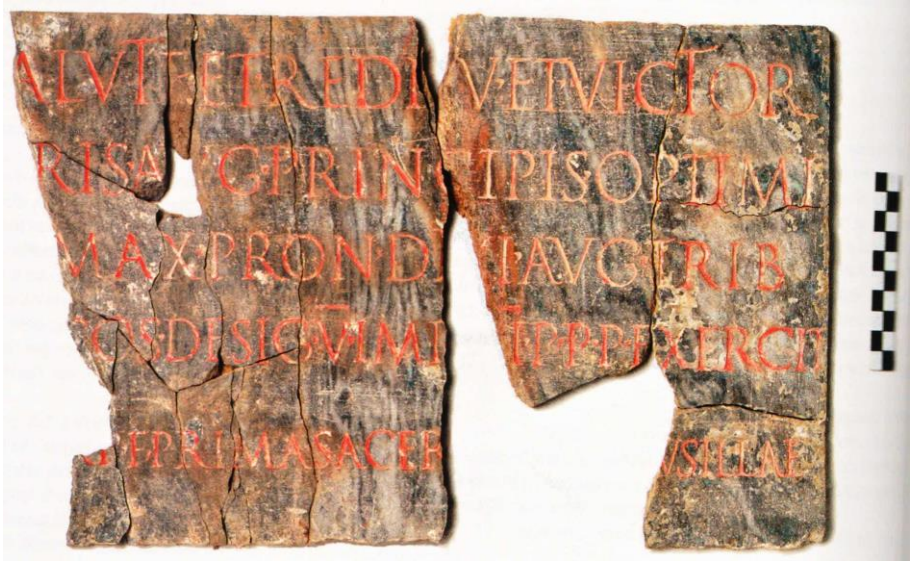 ALVTE·ET·REDI V·ET·VICTOR
RIS·A G·PRIN IPIS·OPTIMI
MAX·PRON·D I·AVG·TRIB
COS·DESIG· P·P·P·EXERCIT
PRIMA·SACER VSILLAE